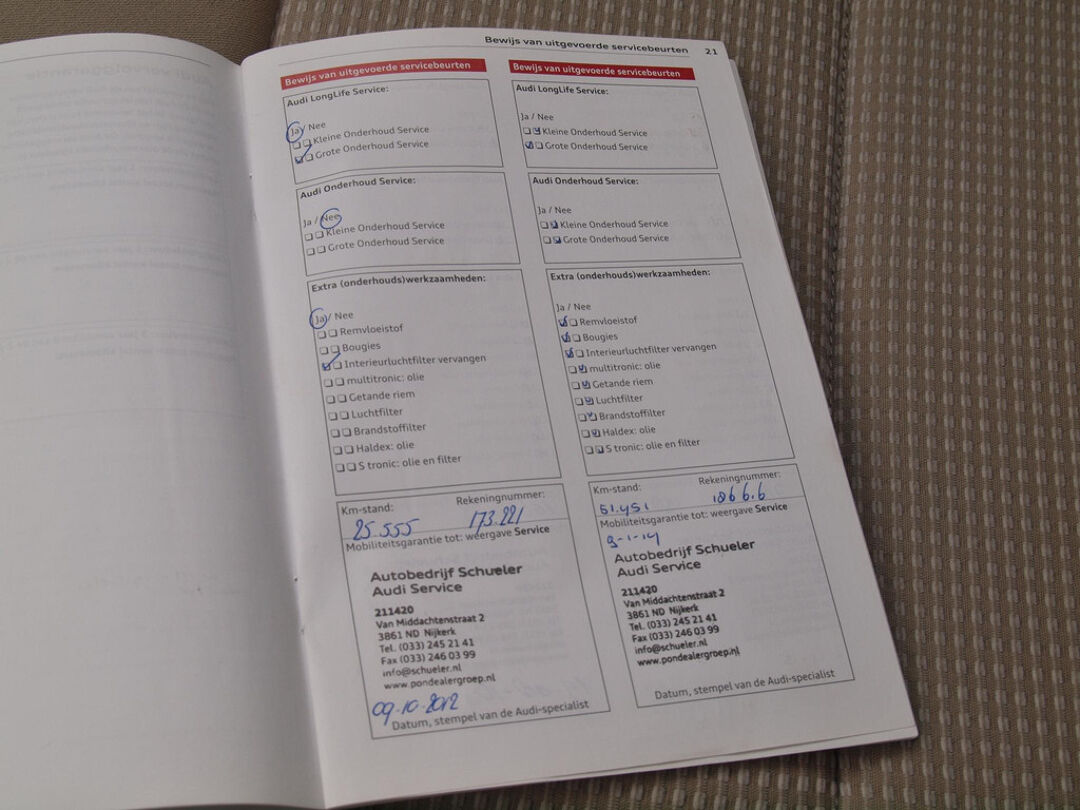 Bewijs van uitgevoerde servicebeurten 21
Bewijs van uitgevoerde servicebeurten
Audi LongLife Service:
Ja / Nee
Kleine Onderhoud Service
Grote Onderhoud Service
Audi Onderhoud Service:
Ja / Nee
Kleine Onderhoud Service
Grote Onderhoud Service
Extra (onderhouds)werkzaamheden:
Ja / Nee
Remvloeistof
Bougies
Interieurluchtfilter vervangen
multitronic: olie
Getande riem
Luchtfilter
Brandstoffilter
Haldex: olie
S tronic: olie en filter
Km-stand: Rekeningnummer:
25.555 173.221
Mobiliteitsgarantie tot: weergave Service
Autobedrijf Schueler
Audi Service
211420
Van Middachtenstraat 2
3861 ND Nijkerk
Tel. (033) 245 21 41
Fax (033) 246 03 99
info@schueler.nl
www.pondealergroep.nl
09-10-2012
Datum, stempel van de Audi-specialist
Bewijs van uitgevoerde servicebeurten
Audi LongLife Service:
Ja / Nee
Kleine Onderhoud Service
Grote Onderhoud Service
Audi Onderhoud Service:
Ja / Nee
Kleine Onderhoud Service
Grote Onderhoud Service
Extra (onderhouds)werkzaamheden:
Ja / Nee
Remvloeistof
Bougies
Interieurluchtfilter vervangen
multitronic: olie
Getande riem
Luchtfilter
Brandstoffilter
Haldex: olie
S tronic: olie en filter
Km-stand: Rekeningnummer:
51.451
Mobiliteitsgarantie tot: weergave Service
9-1-14
Autobedrijf Schueler
Audi Service
211420
Van Middachtenstraat 2
3861 ND Nijkerk
Tel. (033) 245 21 41
Fax (033) 246 03 99
info@schueler.nl
www.pondealergroep.nl
Datum, stempel van de Audi-specialist